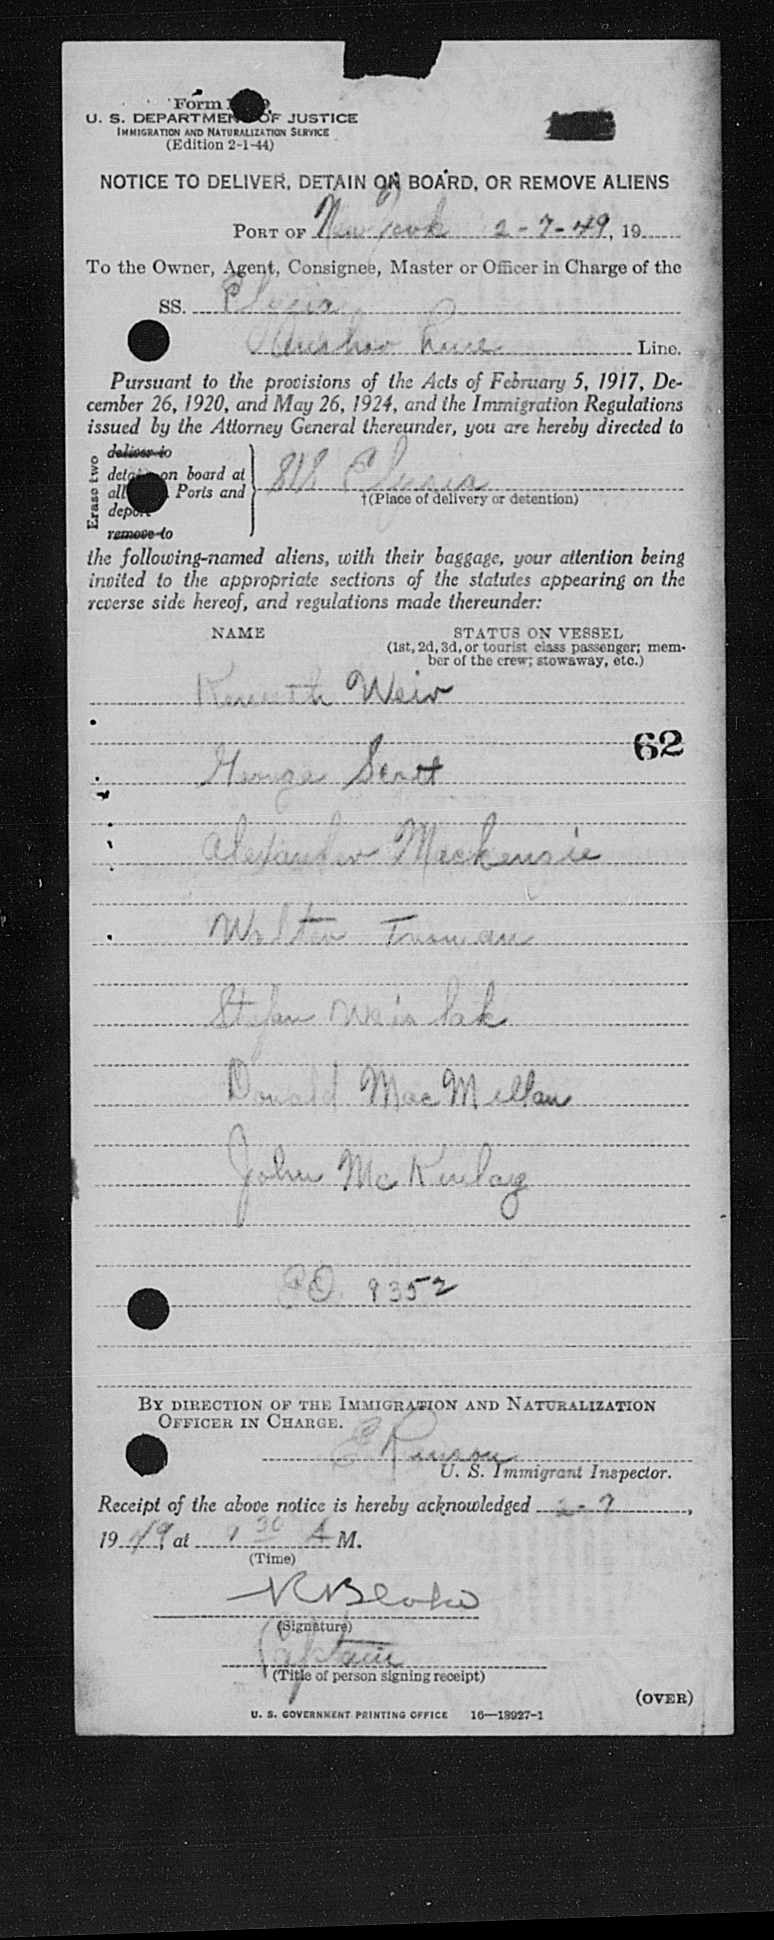 Form
U. S. DEPARTMENT OF JUSTICE
IMMIGRATION AND NATURALIZATION SERVICE
(Edition 2-1-44)
NOTICE TO DELIVER, DETAIN ON BOARD, OR REMOVE ALIENS
PORT OF New York 2-7-49, 19
To the Owner, Agent, Consignee, Master or Officer in Charge of the
SS. Elysia
Anchor Line Line.
Pursuant to the provisions of the Acts of February 5, 1917, De-
cember 26, 1920, and May 26, 1924, and the Immigration Regulations
issued by the Attorney General thereunder, you are hereby directed to
Erase two
deliver to
detain on board at
all Ports and
deport
remove to
S/S Elysia
†(Place of delivery or detention)
the following-named aliens, with their baggage, your attention being
invited to the appropriate sections of the statutes appearing on the
reverse side hereof, and regulations made thereunder:
NAME STATUS ON VESSEL
(1st, 2d, 3d, or tourist class passenger; mem-
ber of the crew; stowaway, etc.)
Kenneth Weir
62
George Scott
Alexander Mackenzie
Walter Truman
Stefan
Donald MacMillan
John McKinlay
EO. 8352
BY DIRECTION OF THE IMMIGRATION AND NATURALIZATION
OFFICER IN CHARGE.
U. S. Immigrant Inspector.
Receipt of the above notice is hereby acknowledged 2-7,
1949, at 1 30 A M.
(Time)
(Signature)
Captain
(Title of person signing receipt)
(OVER)
U. S. GOVERNMENT PRINTING OFFICE 16—18927-1